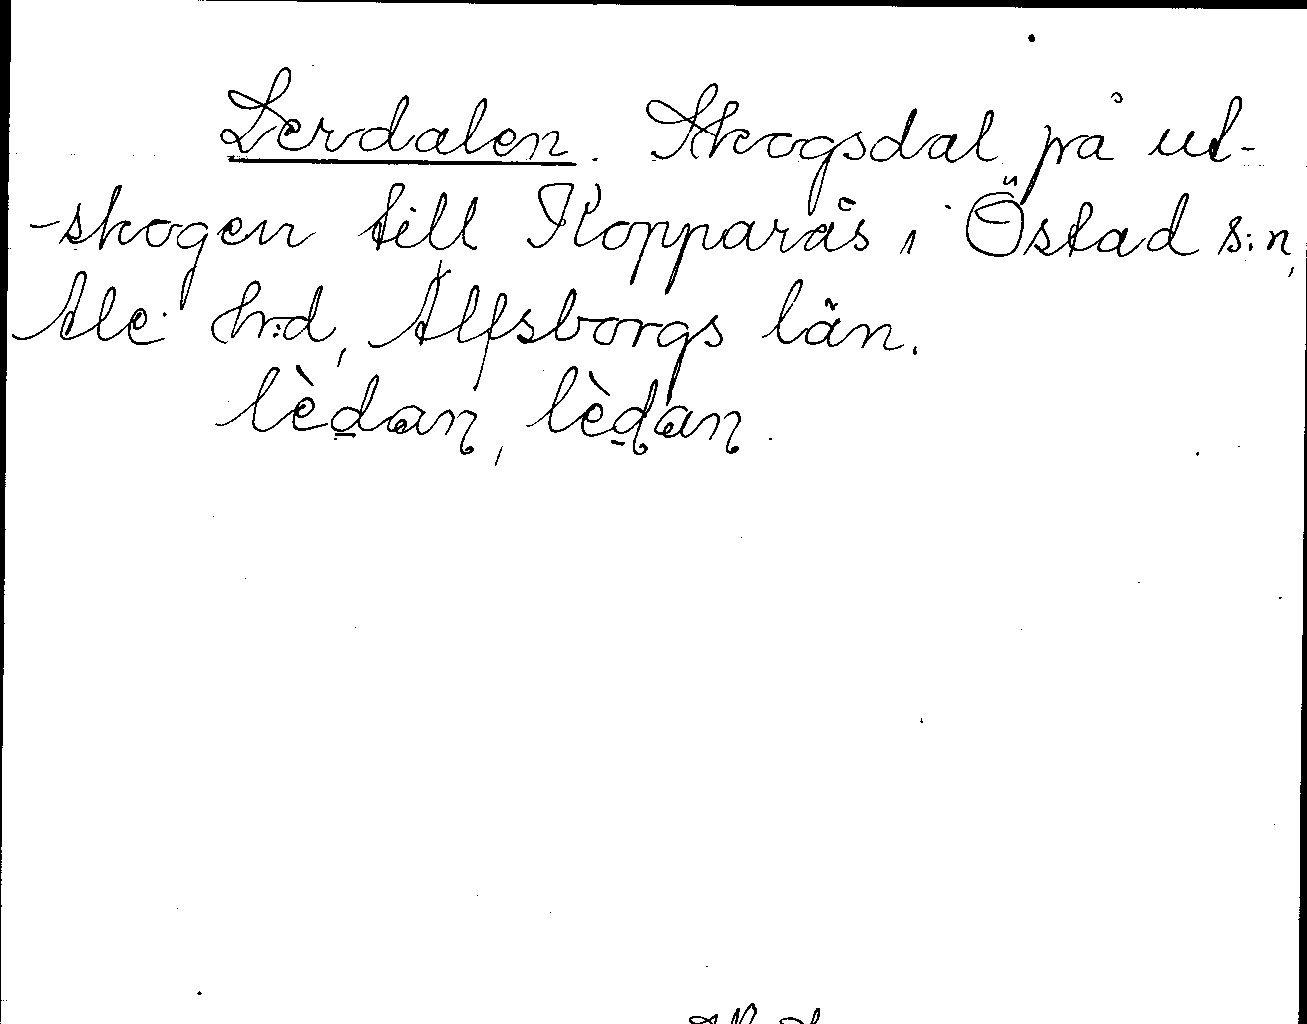 Lerdalen. Skogsdal på ut-
-skogen till Kopparås i Östad s:n,
Ale h:d, Älfsborgs län.
lèdan, lèdan.